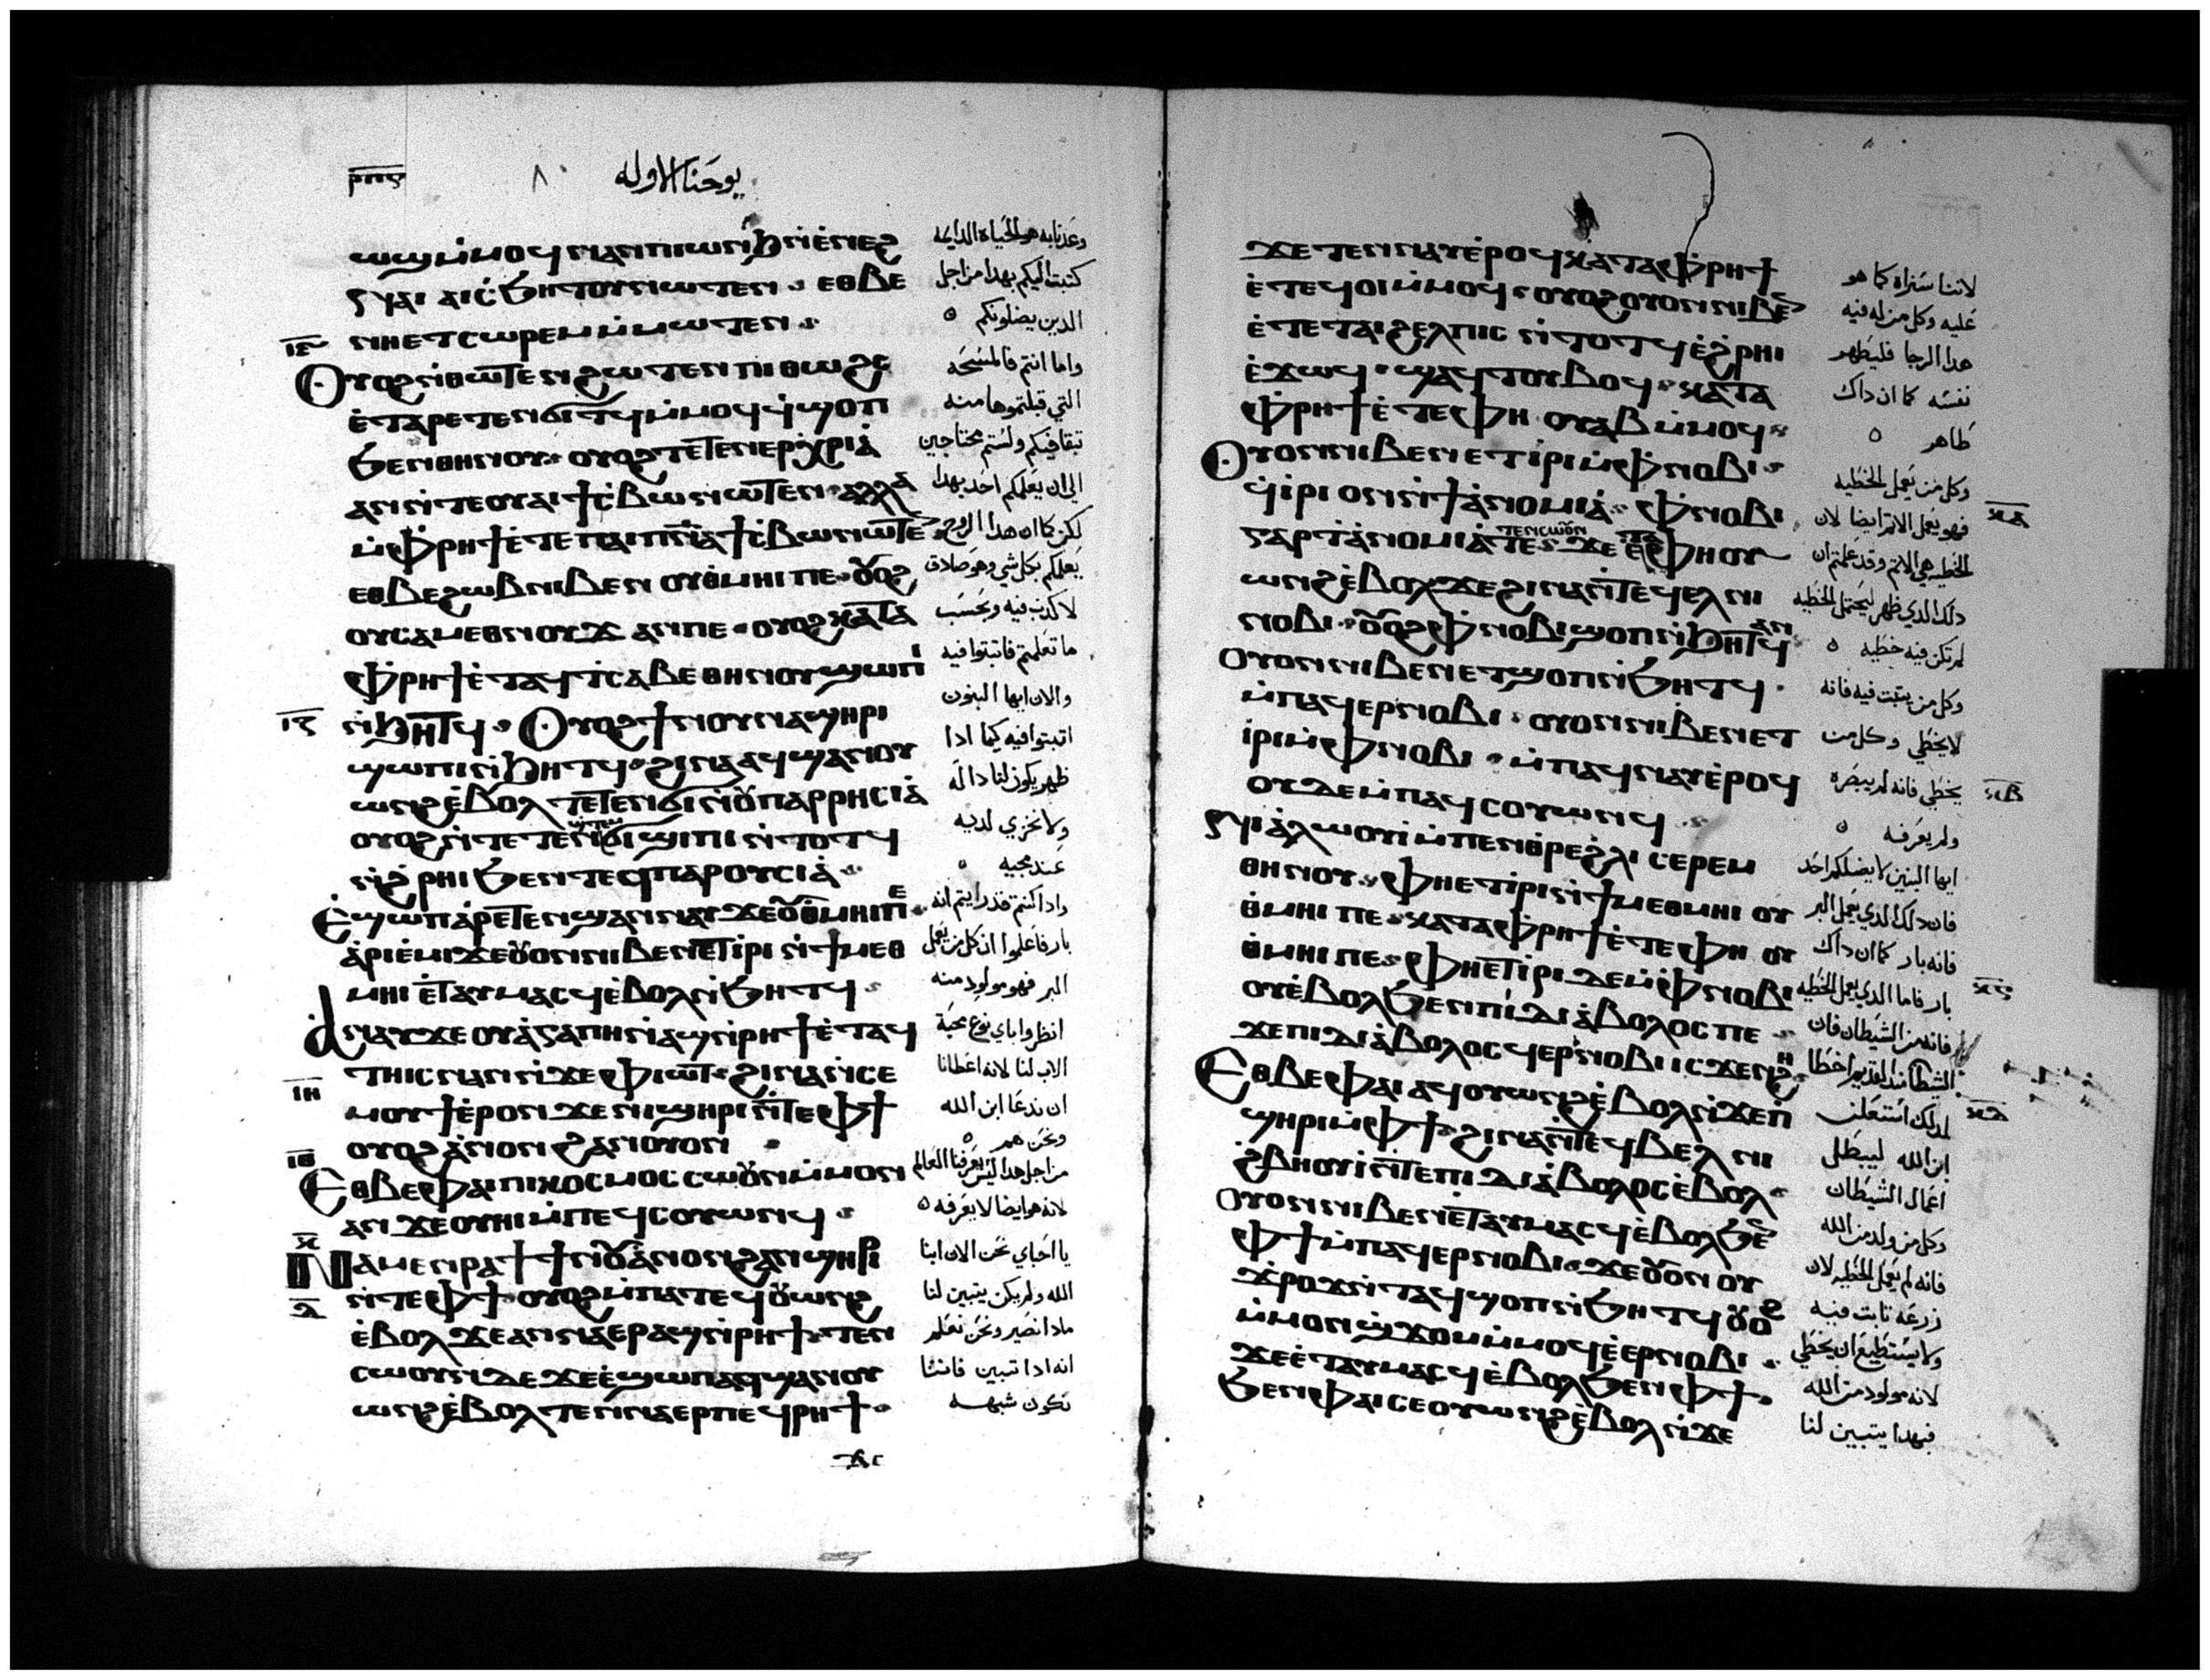 ⲣⲡⲋ
٨٠
يوحنا الاوله
ⲱϣ ⲙ̀ⲙⲟϥ ⲛⲁⲛ ⲡⲓⲱⲛϧ ⲛ̀ⲉⲛⲉϩ
ⲛⲏⲉⲧⲥⲱⲣⲉⲙ ⲙ̀ⲙⲱⲧⲉⲛ
ⲓⲍ
Ⲟⲩⲟϩ ⲛ̀ⲑⲱⲧⲉⲛ ϩⲱⲧⲉⲛ ⲡⲓⲑⲱϩⲥ
ⲉ̀ⲧⲁⲣⲉⲧⲉⲛϭⲓⲧϥ ⲙ̀ⲙⲟϥ ϥ̀ϣⲟⲡ
ϧⲉⲛ ⲑⲏⲛⲟⲩ ⲟⲩⲟϩ ⲧⲉⲧⲉⲛⲉⲣⲭⲣⲓⲁ̀
ⲁⲛ ⲛ̀ⲧⲉ ⲟⲩⲁⲓ ϯⲥ̀ⲃⲱ ⲛⲱⲧⲉⲛ ⲁⲗⲗⲁ
ⲙ̀ⲫⲣⲏϯ ⲉ̀ⲧⲉ ⲡⲁⲓⲡⲛⲁ ϯⲥ̀ⲃⲱ ⲛⲱⲧⲉ
ⲉⲑⲃⲉ ϩⲱⲃ ⲛⲓⲃⲉⲛ ⲟⲩⲑ̀ⲙⲏⲓ ⲡⲉ ⲟⲩⲟϩ
ⲟⲩⲥⲁⲙⲉⲑⲛⲟⲩϫ ⲁⲛ ⲡⲉ ⲟⲩⲟϩ ⲕⲁⲧⲁ
ⲫⲣⲏϯ ⲉ̀ⲧⲁϥⲧⲥⲁⲃⲉ ⲑⲏⲛⲟⲩ ϣⲱⲡⲓ
ⲛ̀ϧⲏⲧϥ Ⲟⲩⲟϩ ϯⲛⲟⲩ ⲛⲁϣⲏⲣⲓ
ϣⲱⲡⲓ ⲛ̀ϧⲏⲧϥ ϩⲓⲛⲁ ⲁϥϣⲁⲛⲟⲩ
ⲱⲛϩ ⲉ̀ⲃⲟⲗ ⲧⲉⲧⲉⲛϭⲓ ⲛ̀ⲟⲩⲡⲁⲣⲣⲏⲥⲓⲁ̀
ⲟⲩⲟϩ ⲛ̀ⲧⲉⲧⲉⲛϣⲧⲉⲙϭⲓϣⲓⲡⲓ ⲛ̀ⲧⲟⲧϥ
ⲛ̀ϩⲣⲏⲓ ϧⲉⲛ ⲧⲉϥⲡⲁⲣⲟⲩⲥⲓⲁ̀
Ⲉϣⲱⲡ ⲁ̀ⲣⲉⲧⲉⲛϣⲁⲛⲛⲁⲩ ϫⲉ ⲟⲩⲑⲙⲏⲓ ⲡⲉ
ⲁ̀ⲣⲓⲉ̀ⲙⲓ ϫⲉ ⲟⲩⲟⲛ ⲛⲓⲃⲉⲛ ⲉⲧⲓⲣⲓ ⲛ̀ϯⲙⲉⲑ
ⲙⲏⲓ ⲉ̀ⲧⲁⲩⲙⲁⲥϥ ⲉ̀ⲃⲟⲗ ⲛ̀ϧⲏⲧϥ
Ⲁⲛⲁⲩ ϫⲉ ⲟⲩⲁ̀ⲅⲁⲡⲏ ⲛ̀ⲁϣ ⲛ̀ⲣⲏϯ ⲉ̀ⲧⲁϥ
ⲧⲏⲓⲥ ⲛⲁⲛ ⲛ̀ϫⲉ ⲫⲓⲱⲧ ϩⲓⲛⲁ ⲛ̀ⲥⲉ
ⲓⲏ
ⲙⲟⲩϯ ⲉ̀ⲣⲟⲛ ϫⲉ ⲛⲓϣⲏⲣⲓ ⲛ̀ⲧⲉ ⲫϯ
ⲟⲩⲟϩ ⲁ̀ⲛⲟⲛ ϩⲁⲛⲟⲩⲟⲛ
ⲓⲑ
Ⲉⲑⲃⲉ ⲫⲁⲓ ⲡⲓⲕⲟⲥⲙⲟⲥ ⲥⲱⲟⲩⲛ ⲙ̀ⲙⲟⲛ
ⲁⲛ ϫⲉ ⲟⲩⲏⲓ ⲙ̀ⲡⲉϥⲥⲟⲩⲱⲛϥ
ⲕ
Ⲛⲁⲙⲉⲛⲣⲁϯ ϯⲛⲟⲩ ⲁ̀ⲛⲟⲛ ϩⲁⲛϣⲏⲣⲓ
ⲛ̀ⲧⲉ ⲫϯ ⲟⲩⲟϩ ⲙ̀ⲡⲁⲧⲉϥⲟⲩⲱⲛϩ
ⲉ̀ⲃⲟⲗ ϫⲉ ⲁⲛⲛⲁⲉⲣ ⲁϣ ⲛ̀ⲣⲏϯ ⲧⲉⲛ
ⲥⲱⲟⲩⲛ ⲇⲉ ϫⲉ ⲉ̀ϣⲱⲡ ⲁϥϣⲁⲛⲟⲩ
ⲱⲛϩ ⲉ̀ⲃⲟⲗ ⲧⲉⲛⲛⲁⲉⲣ ⲡⲉϥⲣⲏϯ
وعدنا به هو الحياه الدايمه
كتبت اليكم بهدا من اجل
الدين يضلونكم
واما انتم فالمسحه
التي قبلتموها منه
تبقا فيكم ولستم محتاجين
الي ان يعلمكم احد بهدا
لكن كما ان هدا الروح
يعلمكم بكل شي وهو صادق
لا كدب فيه وبحسب
ما تعلمتم فاثبتوا فيه
والان ايها البنون
اثبتوا فيه كيما ادا
ظهر يكون لنا داله
ولا نخزي لديه
عند مجيه
وادا كنتم قد رايتم انه
بار فاعلموا ان كل من يعمل
البر فهو مولود منه
انظروا باي نوع محبة
الاب لنا لانه اعطانا
ان ندعا ابن الله
ونحن هم
من اجل هدا ليس يعرفنا العالم
لانه هو ايضا لا يعرفه
يا احباي نحن الان ابنا
الله ولم يكن يتبين لنا
مادا نصير ونحن نعلم
انه ادا تبين فاننا
نكون شبهه
ϫⲉ ⲧⲉⲛⲛⲁⲩ ⲉ̀ⲣⲟϥ ⲕⲁⲧⲁ ⲫⲣⲏϯ
ⲉ̀ⲧⲉϥⲟⲓ ⲙ̀ⲙⲟϥ ⲟⲩⲟϩ ⲟⲩⲟⲛ ⲛⲓⲃⲉ
ⲉ̀ⲧⲉ ⲧⲁⲓϩⲉⲗⲡⲓⲥ ⲛ̀ⲧⲟⲧϥ ⲉ̀ϩⲣⲏⲓ
ⲉ̀ϫⲱϥ ϣⲁϥⲧⲟⲩⲃⲟϥ ⲕⲁⲧⲁ
ⲫⲣⲏϯ ⲉ̀ⲧⲉ ⲫⲏ ⲟⲩⲁⲃ ⲙ̀ⲙⲟϥ
Ⲟⲩⲟⲛ ⲛⲓⲃⲉⲛ ⲉⲧⲓⲣⲓ ⲙ̀ⲫⲛⲟⲃⲓ
ϥ̀ⲓⲣⲓ ⲟⲛ ⲛ̀ϯⲁ̀ⲛⲟⲙⲓⲁ̀ ⲫⲛⲟⲃⲓ
ⲕⲁ
ⲅⲁⲣ ⲧⲁ̀ⲛⲟⲙⲓⲁ ⲧⲉ ⲧⲉⲛⲥⲱⲟⲩⲛ ϫⲉ ⲉ̀ⲧⲁ ⲫⲏ ⲟⲩ
ⲱⲛϩ ⲉ̀ⲃⲟⲗ ϫⲉ ϩⲓⲛⲁ ⲛ̀ⲧⲉϥⲉⲗ ⲛⲓ
ⲛⲟⲃⲓ ⲟⲩⲟϩ ⲫⲛⲟⲃⲓ ϣⲟⲡ ⲛ̀ϧⲏⲧϥ ⲁⲛ
Ⲟⲩⲟⲛ ⲛⲓⲃⲉⲛ ⲉⲧϣⲟⲡ ⲛ̀ϧⲏⲧϥ
ⲙ̀ⲡⲁϥⲉⲣⲛⲟⲃⲓ ⲟⲩⲟⲛ ⲛⲓⲃⲉⲛ ⲉⲧ
ⲓⲣⲓ ⲙ̀ⲫⲛⲟⲃⲓ ⲙ̀ⲡⲁϥⲛⲁⲩ ⲉ̀ⲣⲟϥ
ⲕⲃ
ⲟⲩⲇⲉ ⲙ̀ⲡⲁϥⲥⲟⲩⲱⲛϥ
ⲛⲓⲁ̀ⲗⲱⲟⲩⲓ ⲙ̀ⲡⲉⲛⲑⲣⲉ ϩⲗⲓ ⲥⲉⲣⲉⲙ
ⲑⲏⲛⲟⲩ ⲫⲏⲉⲧⲓⲣⲓ ⲛ̀ϯⲙⲉⲑⲙⲏⲓ ⲟⲩ
ⲑ̀ⲙⲏⲓ ⲡⲉ ⲕⲁⲧⲁ ⲫⲣⲏϯ ⲉ̀ⲧⲉ ⲫⲏ ⲟⲩ
ⲑ̀ⲙⲏⲓ ⲡⲉ ⲫⲏⲉⲧⲓⲣⲓ ⲇⲉ ⲙ̀ⲫⲛⲟⲃⲓ
ⲟⲩⲉ̀ⲃⲟⲗ ϧⲉⲛ ⲡⲓⲇⲓⲁ̀ⲃⲟⲗⲟⲥ ⲡⲉ
ϫⲉ ⲡⲓⲇⲓⲁ̀ⲃⲟⲗⲟⲥ ϥⲉⲣⲛⲟⲃⲓ ⲓⲥϫⲉⲛ ϩⲏ
Ⲉⲑⲃⲉ ⲫⲁⲓ ⲁϥⲟⲩⲱⲛϩ ⲉ̀ⲃⲟⲗ ⲛ̀ϫⲉ ⲡ
ϣⲏⲣⲓ ⲙ̀ⲫϯ ϩⲓⲛⲁ ⲛ̀ⲧⲉϥⲃⲉⲗ ⲛⲓ
ϩⲃⲏⲟⲩⲓ ⲛ̀ⲧⲉ ⲡⲓⲇⲓⲁ̀ⲃⲟⲗⲟⲥ ⲉ̀ⲃⲟⲗ
Ⲟⲩⲟⲛ ⲛⲓⲃⲉⲛ ⲉ̀ⲧⲁⲩⲙⲁⲥϥ ⲉ̀ⲃⲟⲗ ϧⲉ
ⲫϯ ⲙ̀ⲡⲁϥⲉⲣⲛⲟⲃⲓ ϫⲉ ⲟⲩⲟⲛ ⲟⲩ
ϫ̀ⲣⲟϫ ⲛ̀ⲧⲁϥ ϣⲟⲡ ⲛ̀ϧⲏⲧϥ ⲟⲩⲟϩ
ⲙ̀ⲙⲟⲛ ϣϫⲟⲙ ⲙ̀ⲙⲟϥ ⲉ̀ⲉⲣⲛⲟⲃⲓ
ϫⲉ ⲉ̀ⲧⲁⲩⲙⲁⲥϥ ⲉ̀ⲃⲟⲗ ϧⲉⲛ ⲫϯ
ϧⲉⲛ ⲫⲁⲓ ⲥⲉⲟⲩⲱⲛϩ ⲉ̀ⲃⲟⲗ ⲛ̀ϫⲉ
لاننا سنراه كما هو
عليه وكل من له فيه
هدا الرجا فليطهر
نفسه كما ان داك
طاهر
وكل من يعمل الخطيه
فهو يعمل الاثم ايضا لان
الخطيه هي الاثم وقد علمتم ان
دلك الدي ظهر ليحتمل الخطيه
لم تكن فيه خطيه
وكل من يثبت فيه فانه
لا يخطي وكل من
يخطي فانه لم يبصره
ولم يعرفه
ايها البنين لا يضلكم احد
فان دلك الدي يعمل البر
فانه بار كما ان داك
بار فاما الدي يعمل الخطيه
فانه من الشيطان فان
الشيطان مند القديم اخطا
لدلك استعلن
ابن الله ليبطل
اعمال الشيطان
وكل من ولد من الله
فانه لم يعمل الخطيه لان
زرعه ثابت فيه
ولا يستطيع ان يخطي
لانه مولود من الله
فبهدا يتبين لنا